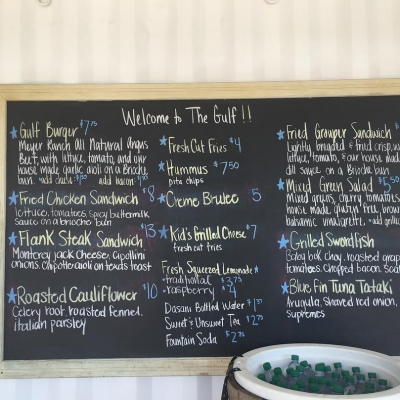 Welcome to The Gulf!!
Gulf Burger $7.75
Meyer Ranch All Natural Angus
Beef, with lettuce, tomato, and our
house made garlic aioli on a Brioche
bun. add cheese $.50 add bacon
Fried Chicken Sandwich $8
lettuce, tomatoes, spicy buttermilk
Sauce on a brioche bun
Flank Steak Sandwich $13
Monterey jack Cheese, cipollini
onions, chipotle aioli on texas toast
Roasted Cauliflower $10
Celery root, roasted fennel,
italian parsley
Fresh Cut Fries $4
Hummus $7.50
pita chips
Creme Brulee 5
Kid's Grilled Cheese $7
fresh cut fries
Fresh Squeezed Lemonade
• traditional $3
• raspberry $4
Dasani Bottled Water
Sweet & Unsweet Tea $2.75
Fountain Soda $2.75
Fried Grouper Sandwich $
Lightly breaded & fried crisp, w
lettuce, tomato, & our house made
dill sauce on a Brioche bun
Mixed Green Salad $5.50
Mixed greens, cherry tomatoes,
house made gluten free brow
balsamic vinaigrette.
Grilled Swordfish
Baby bok choy, roasted grape
tomatoes, chopped bacon,
Blue Fin Tuna Tataki
Arugula, Shaved red onion,
supremes